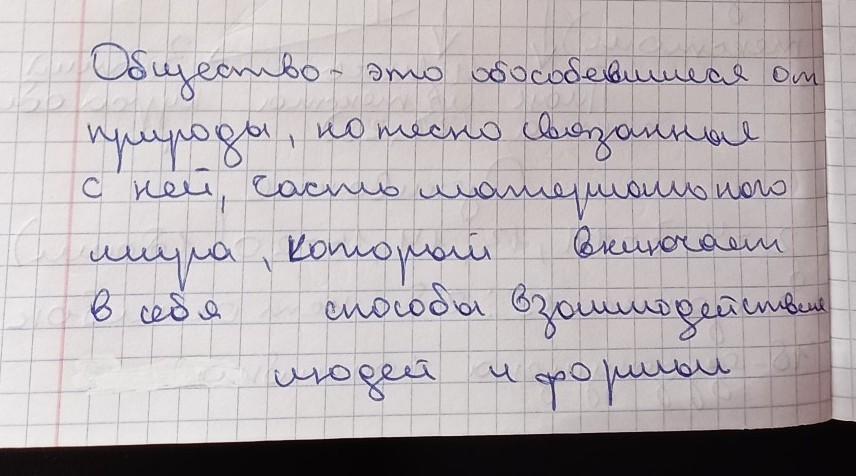 Общество - это обособевшиеся от
природы, но тесно связанная
с ней, часть материального
мира, который включает
в себя способы взаимодействия
людей и формы